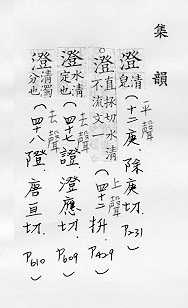 集韻
澄 清皃 (十二庚 平聲 除庚切. P231)
澄 直拯切 水清不流文 (四十二拼 上聲 P429)
澄 水清定也 (四十七證 去聲 澄應切. P609)
澄 清濁分也 (四十八隥 去聲 唐亘切. P610)